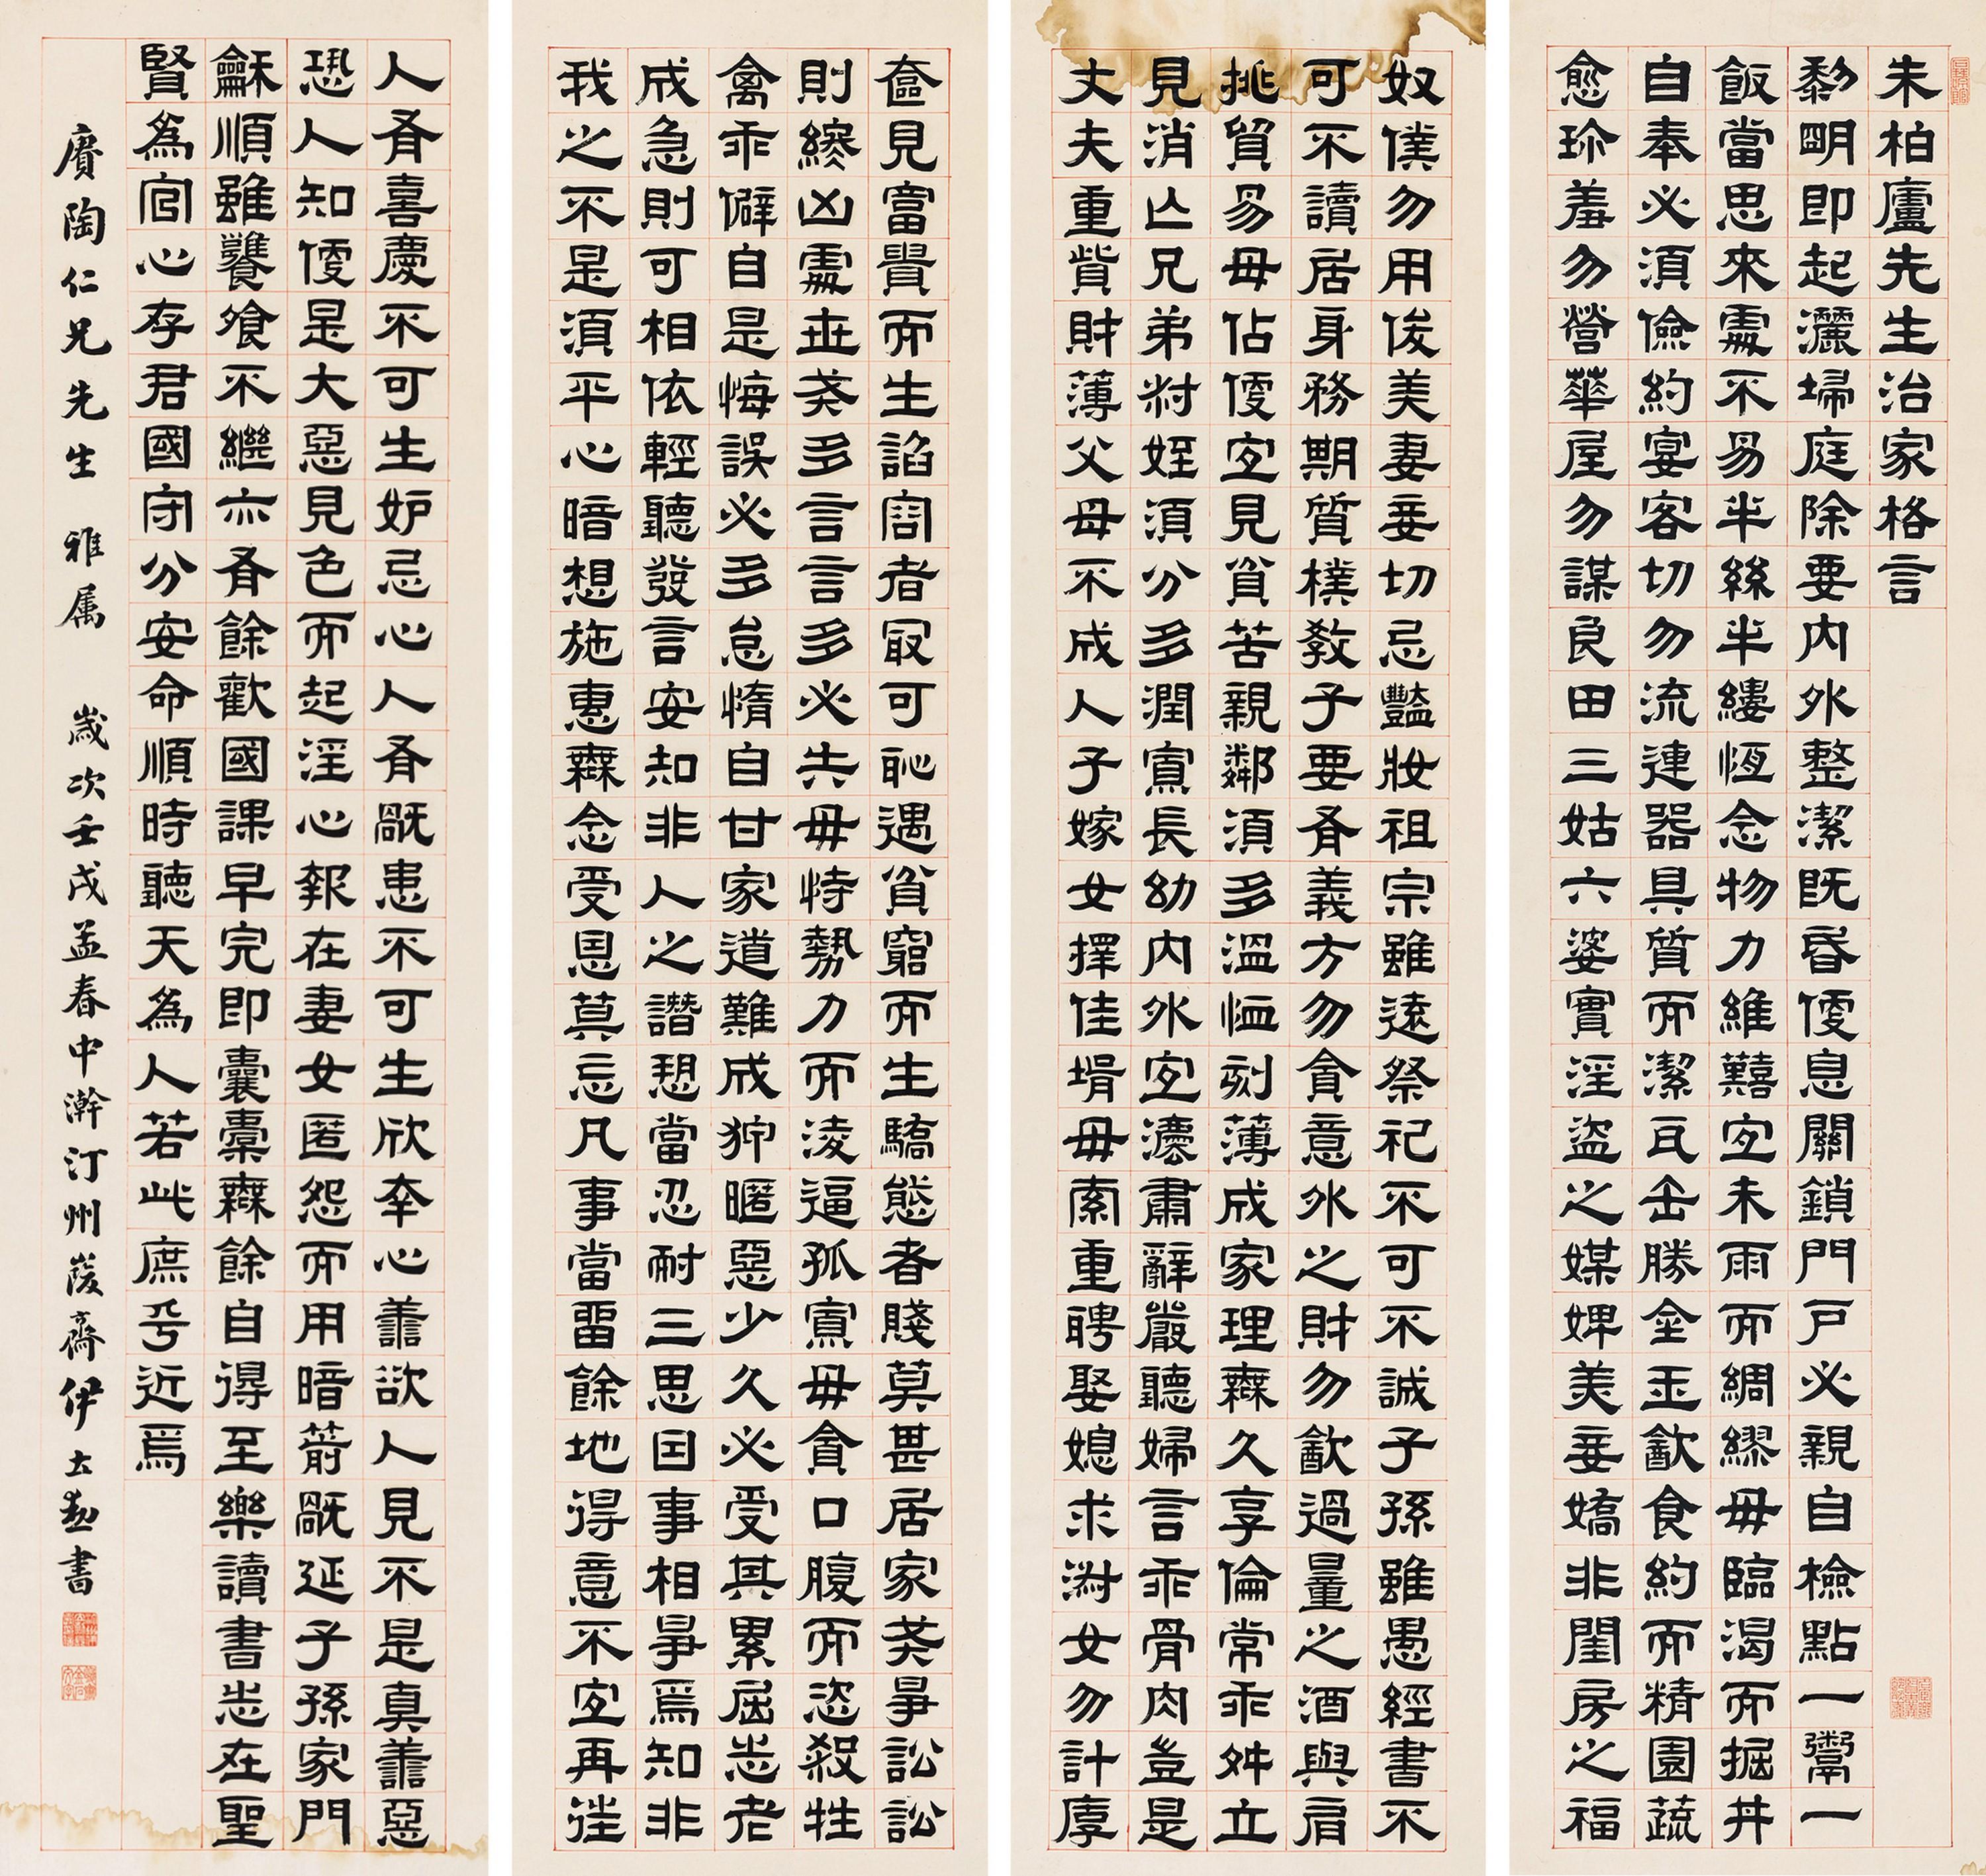 朱柏廬先生治家格言
黎明即起灑埽庭除要內外整潔既昏便息關鎖門戶必親自檢點一鬻一
飯當思來處不易半絲半縷恆念物力維囏宜未雨而綢繆毋臨渴而掘井
自奉必須儉約宴客切勿流連器具質而潔瓦缶勝金玉飲食約而精園蔬
愈珍羞勿營華屋勿謀良田三姑六婆實淫盜之媒婢美妾嬌非閨房之福
奴僕勿用俊美妻妾切忌豔妝祖宗雖遠祭祀不可不誠子孫雖愚經書不
可不讀居身務期質樸教子要有義方勿貪意外之財勿飲過量之酒與肩
挑貿易毋佔便宜見貧苦親鄰須多溫恤刻薄成家理無久享倫常乖舛立
見消亡兄弟叔姪須分多潤寡長幼內外宜法肅辭嚴聽婦言乖骨肉豈是
丈夫重貲財薄父母不成人子嫁女擇佳壻毋索重聘娶媳求淑女勿計厚
奩見富貴而生諂容者最可恥遇貧窮而生驕態者賤莫甚居家戒爭訟訟
則終凶處世戒多言言多必失毋恃勢力而凌逼孤寡毋貪口腹而恣殺牲
禽乖僻自是悔誤必多怠惰自甘家道難成狎暱惡少久必受其累屈志老
成急則可相依輕聽發言安知非人之譖愬當忍耐三思因事相爭焉知非
我之不是須平心暗想施惠無念受恩莫忘凡事當留餘地得意不宜再往
人有喜慶不可生妒忌心人有禍患不可生欣幸心善欲人見不是真善惡
恐人知便是大惡見色而起淫心報在妻女匿怨而用暗箭禍延子孫家門
龢順雖饔飧不繼亦有餘歡國課早完即囊橐無餘自得至樂讀書志在聖
賢為官心存君國守分安命順時聽天為人若此庶乎近焉
賡陶仁兄先生 雅属 歲次壬戌孟春中澣汀州峻齋伊立勳書